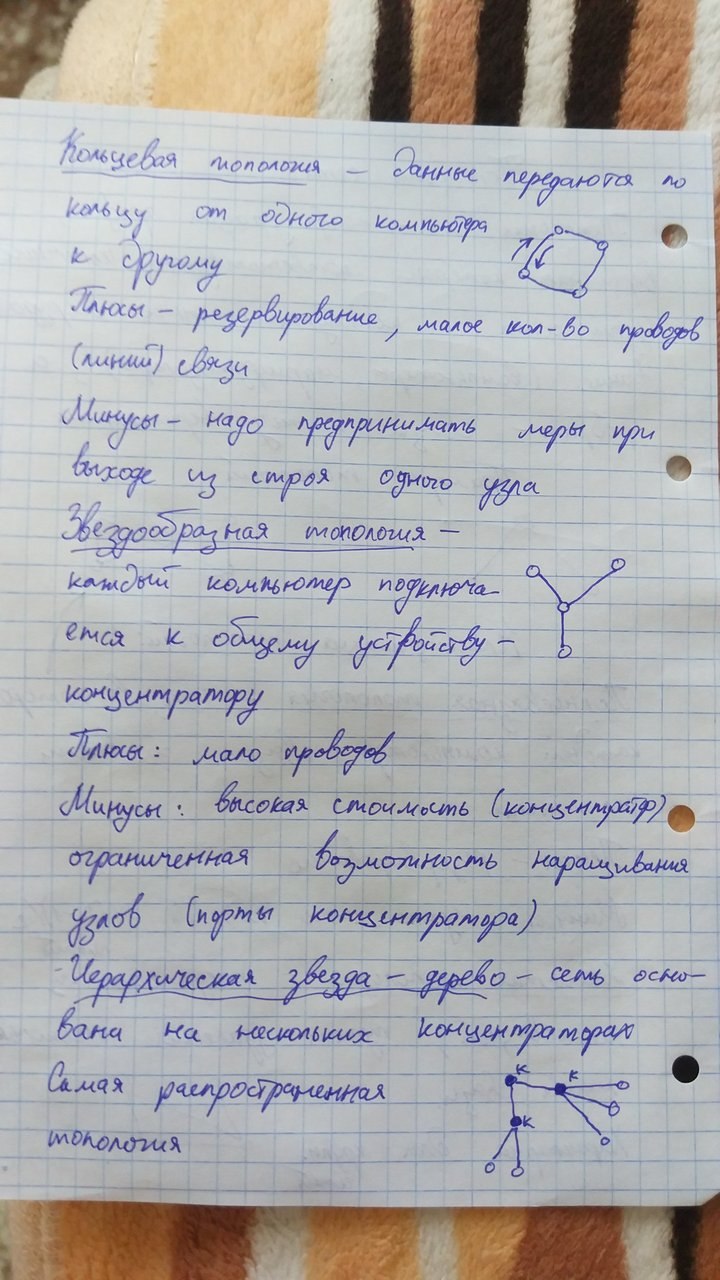 Кольцевая топология – Данные передаются по
кольцу от одного компьютера
к другому
Плюсы – резервирование, малое кол-во проводов
(линий) связи
Минусы – надо предпринимать меры при
выходе из строя одного узла
Звездообразная топология –
каждый компьютер подключа-
ется к общему устройству –
концентратору
Плюсы: мало проводов
Минусы: высокая стоимость (концентратор)
ограниченная возможность наращивания
узлов (порты концентратора)
Иерархическая звезда – дерево – сеть осно-
вана на нескольких концентраторах
К К
Самая распространенная
К
топология